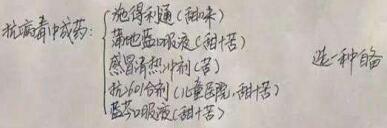 抗病毒中成药:
施得利通(甜味)
蒲地蓝口服液(甜+苦)
感冒清热冲剂(苦)
抗601合剂(儿童医院,甜+苦)
蓝芩口服液(甜+苦)
选一种自备